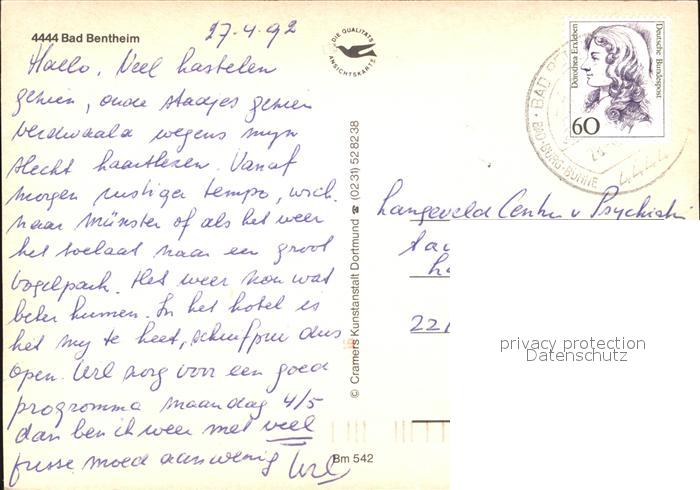 4444 Bad Bentheim
27-4-92
Hallo, Veel kastelen
gezien, oude stadjes gezien
verdwaald wegens mijn
slecht kaartlezen. Vanaf
morgen rustiger tempo, wsch.
naar Münster of als het weer
het toelaat naar een groot
vogelpark. Het weer kon wat
beter kunnen. In het hotel is
het mij te heet, schuifpui dus
open. Url zorg voor een goed
programma maandag 4/5
dan ben ik weer met veel
frisse moed aanwezig Url
DIE QUALITÄTS
ANSICHTSKARTE
© Cramers Kunstanstalt Dortmund ☎ (0231) 528238
Bm 542
Dorothea Erxleben
Deutsche Bundespost
60
BAD
BAD-BURG-BÜHNE
4444
Langeveld Centr. v Psychiatri
221
privacy protection
Datenschutz